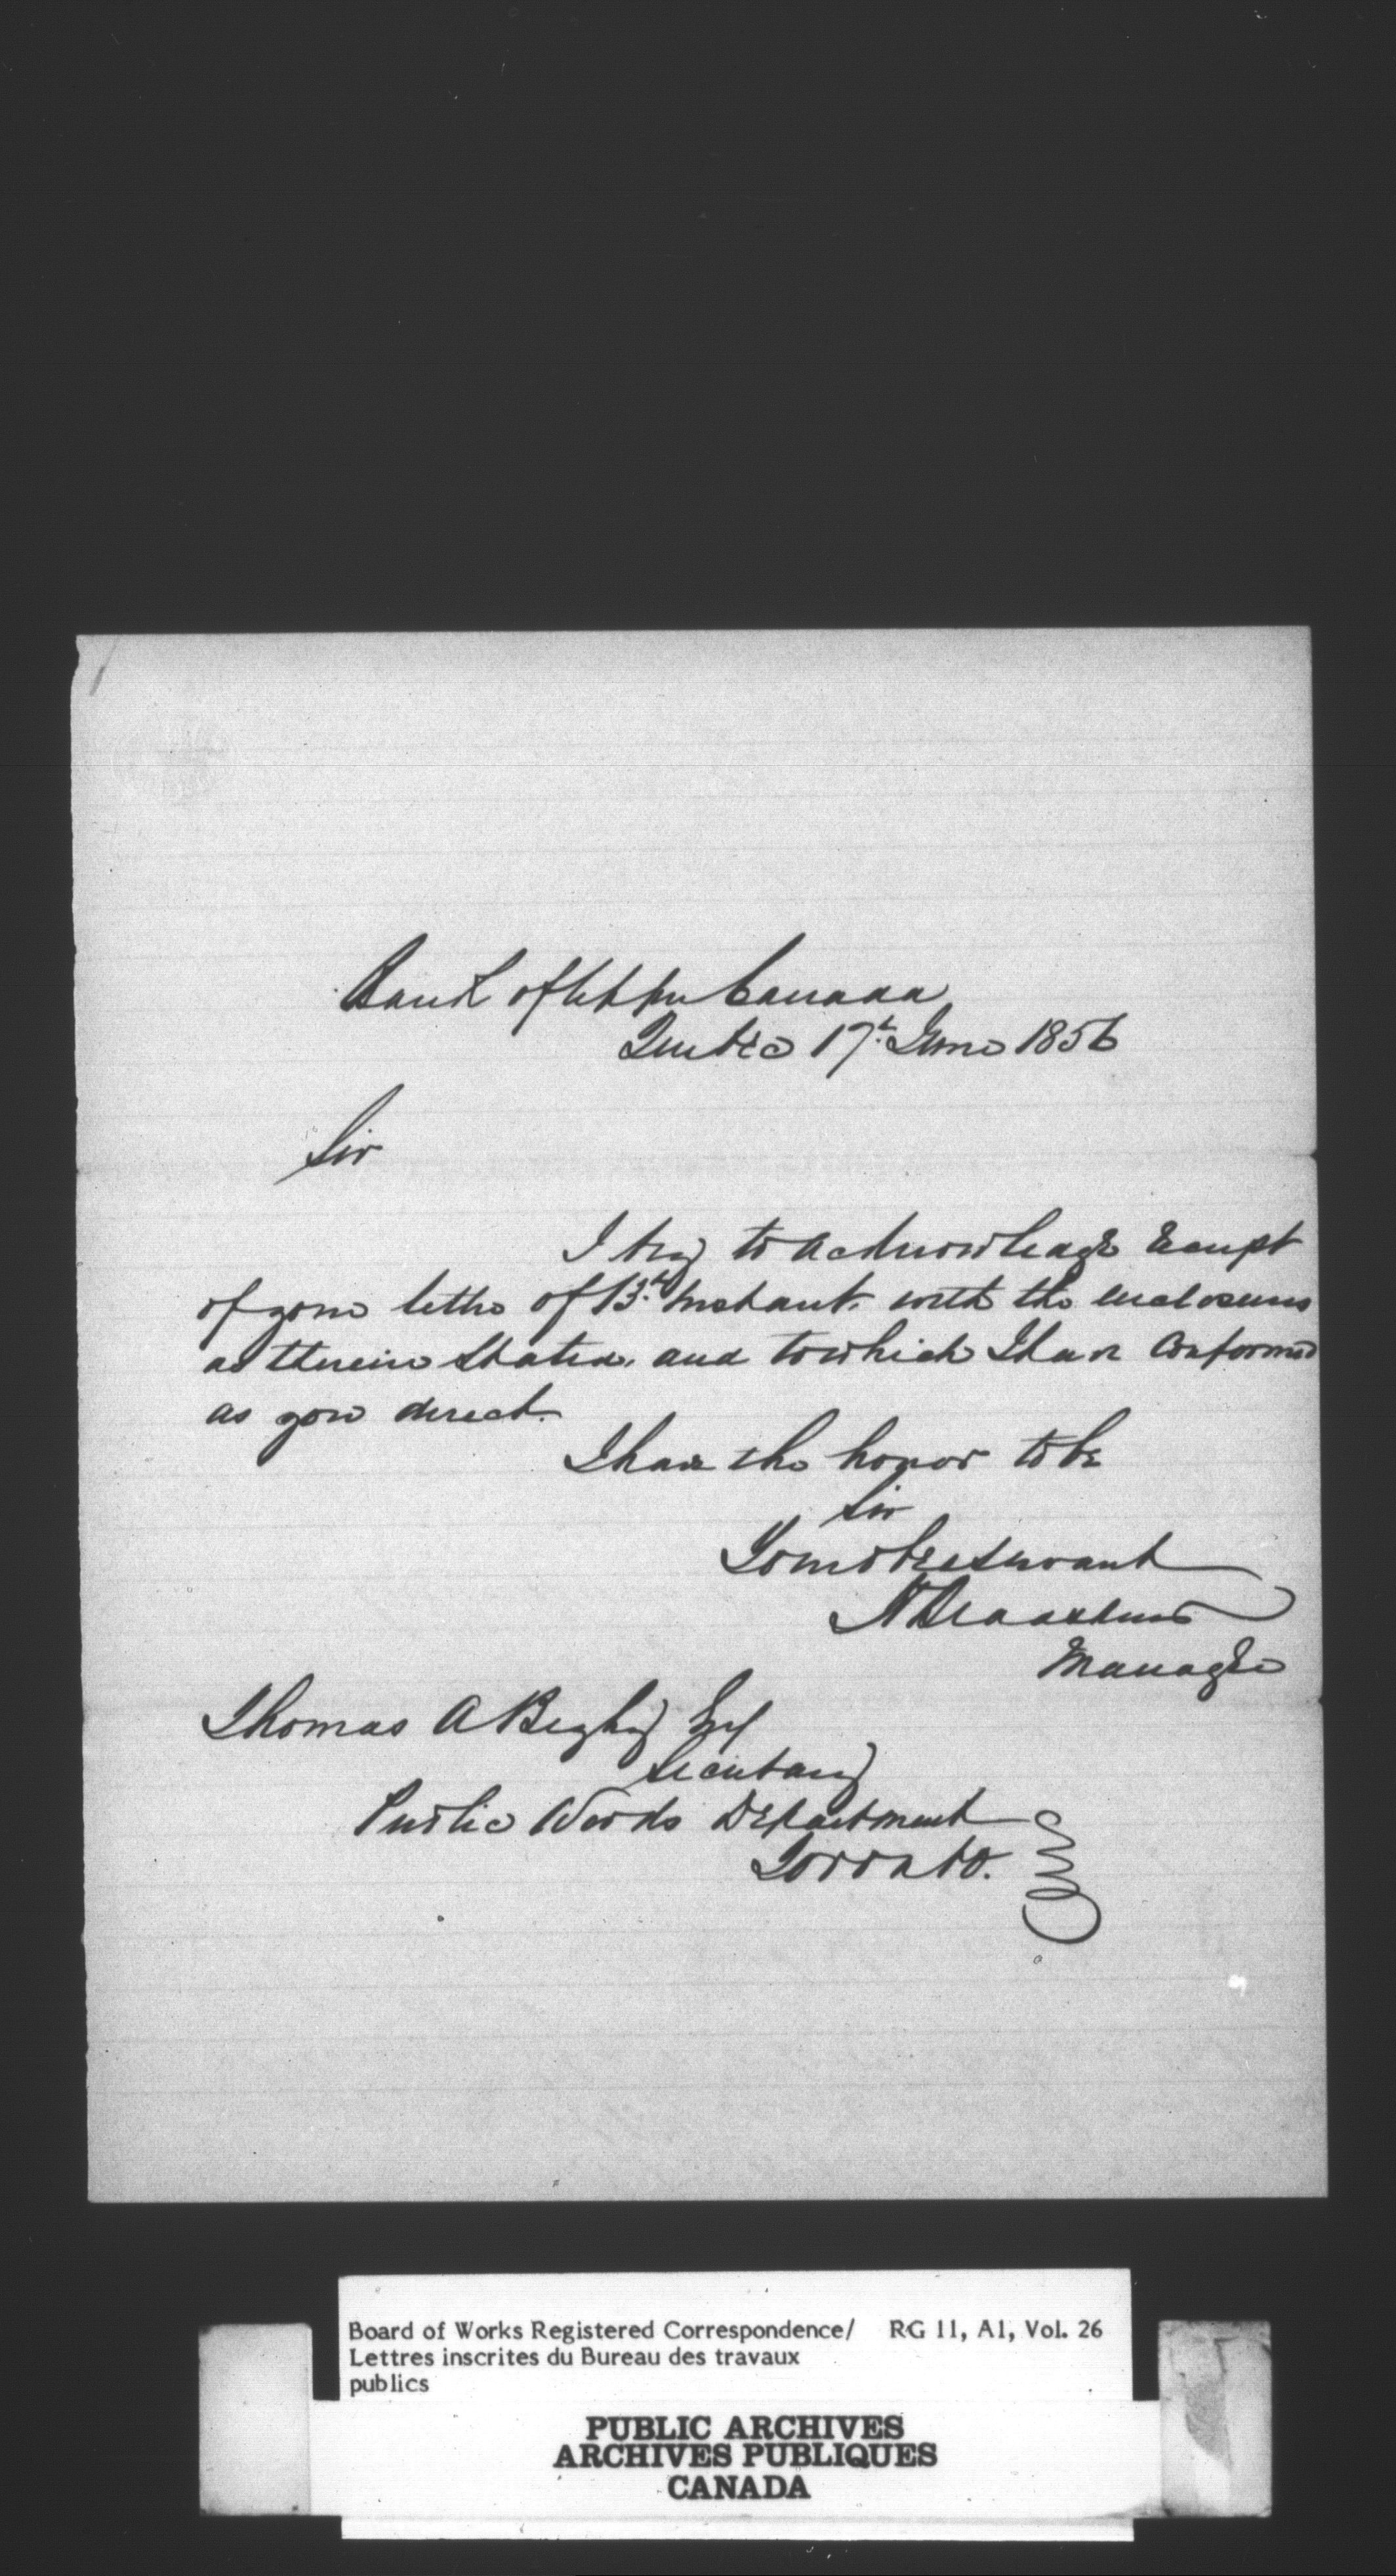 Bank of Upper Canada
Quebec 17th June 1856
Sir
I beg to acknowledge receipt
of your letter of 13th Instant. with the enclosures
as therein stated. and to which I have conformed
as you direct.
I have the honor to be
Sir
Your obet servant
Manager
Thomas A Begly Esq
Secretary
Public Works Department
Toronto.
Board of Works Registered Correspondence/ RG 11, A1, Vol. 26
Lettres inscrites du Bureau des travaux
publics
PUBLIC ARCHIVES
ARCHIVES PUBLIQUES
CANADA